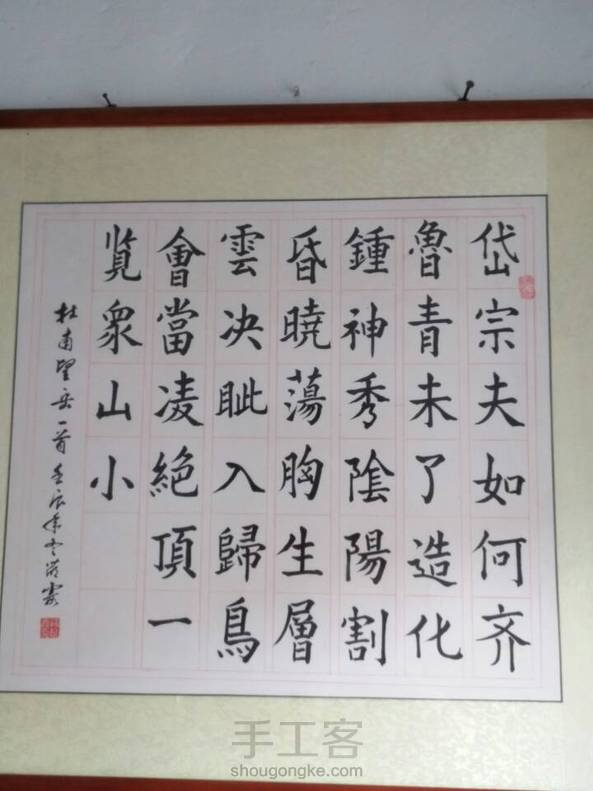 岱宗夫如何齐
魯青未了造化
鍾神秀陰陽割
昏曉蕩胸生層
雲决眦入歸鳥
會當凌絕頂一
覧衆山小
杜甫望岳一首壬辰年
手工客
shougongke.com